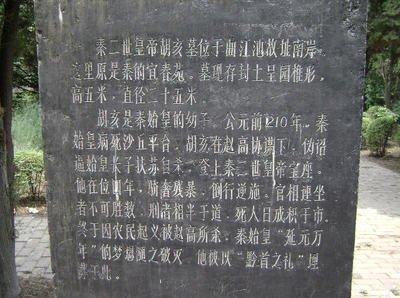 秦二世皇帝胡亥墓位于曲江池故址南岸。
这里原是秦的宜春苑。墓现存封土呈园椎形，
高五米，直径二十五米。
胡亥是秦始皇的幼子。公元前210年，秦
始皇病死沙丘平台，胡亥在赵高协谋下，伪诏
逼始皇长子扶苏自杀，登上秦二世皇帝宝座。
他在位四年，残暴，倒行逆施。官相连坐
者不可胜数，刑者相半于道，死人日成积于市，
终于因农民起义被赵高所杀。秦始皇“延元万
年”的梦想随之破灭。他被以“黔首之礼”埋
葬于此。